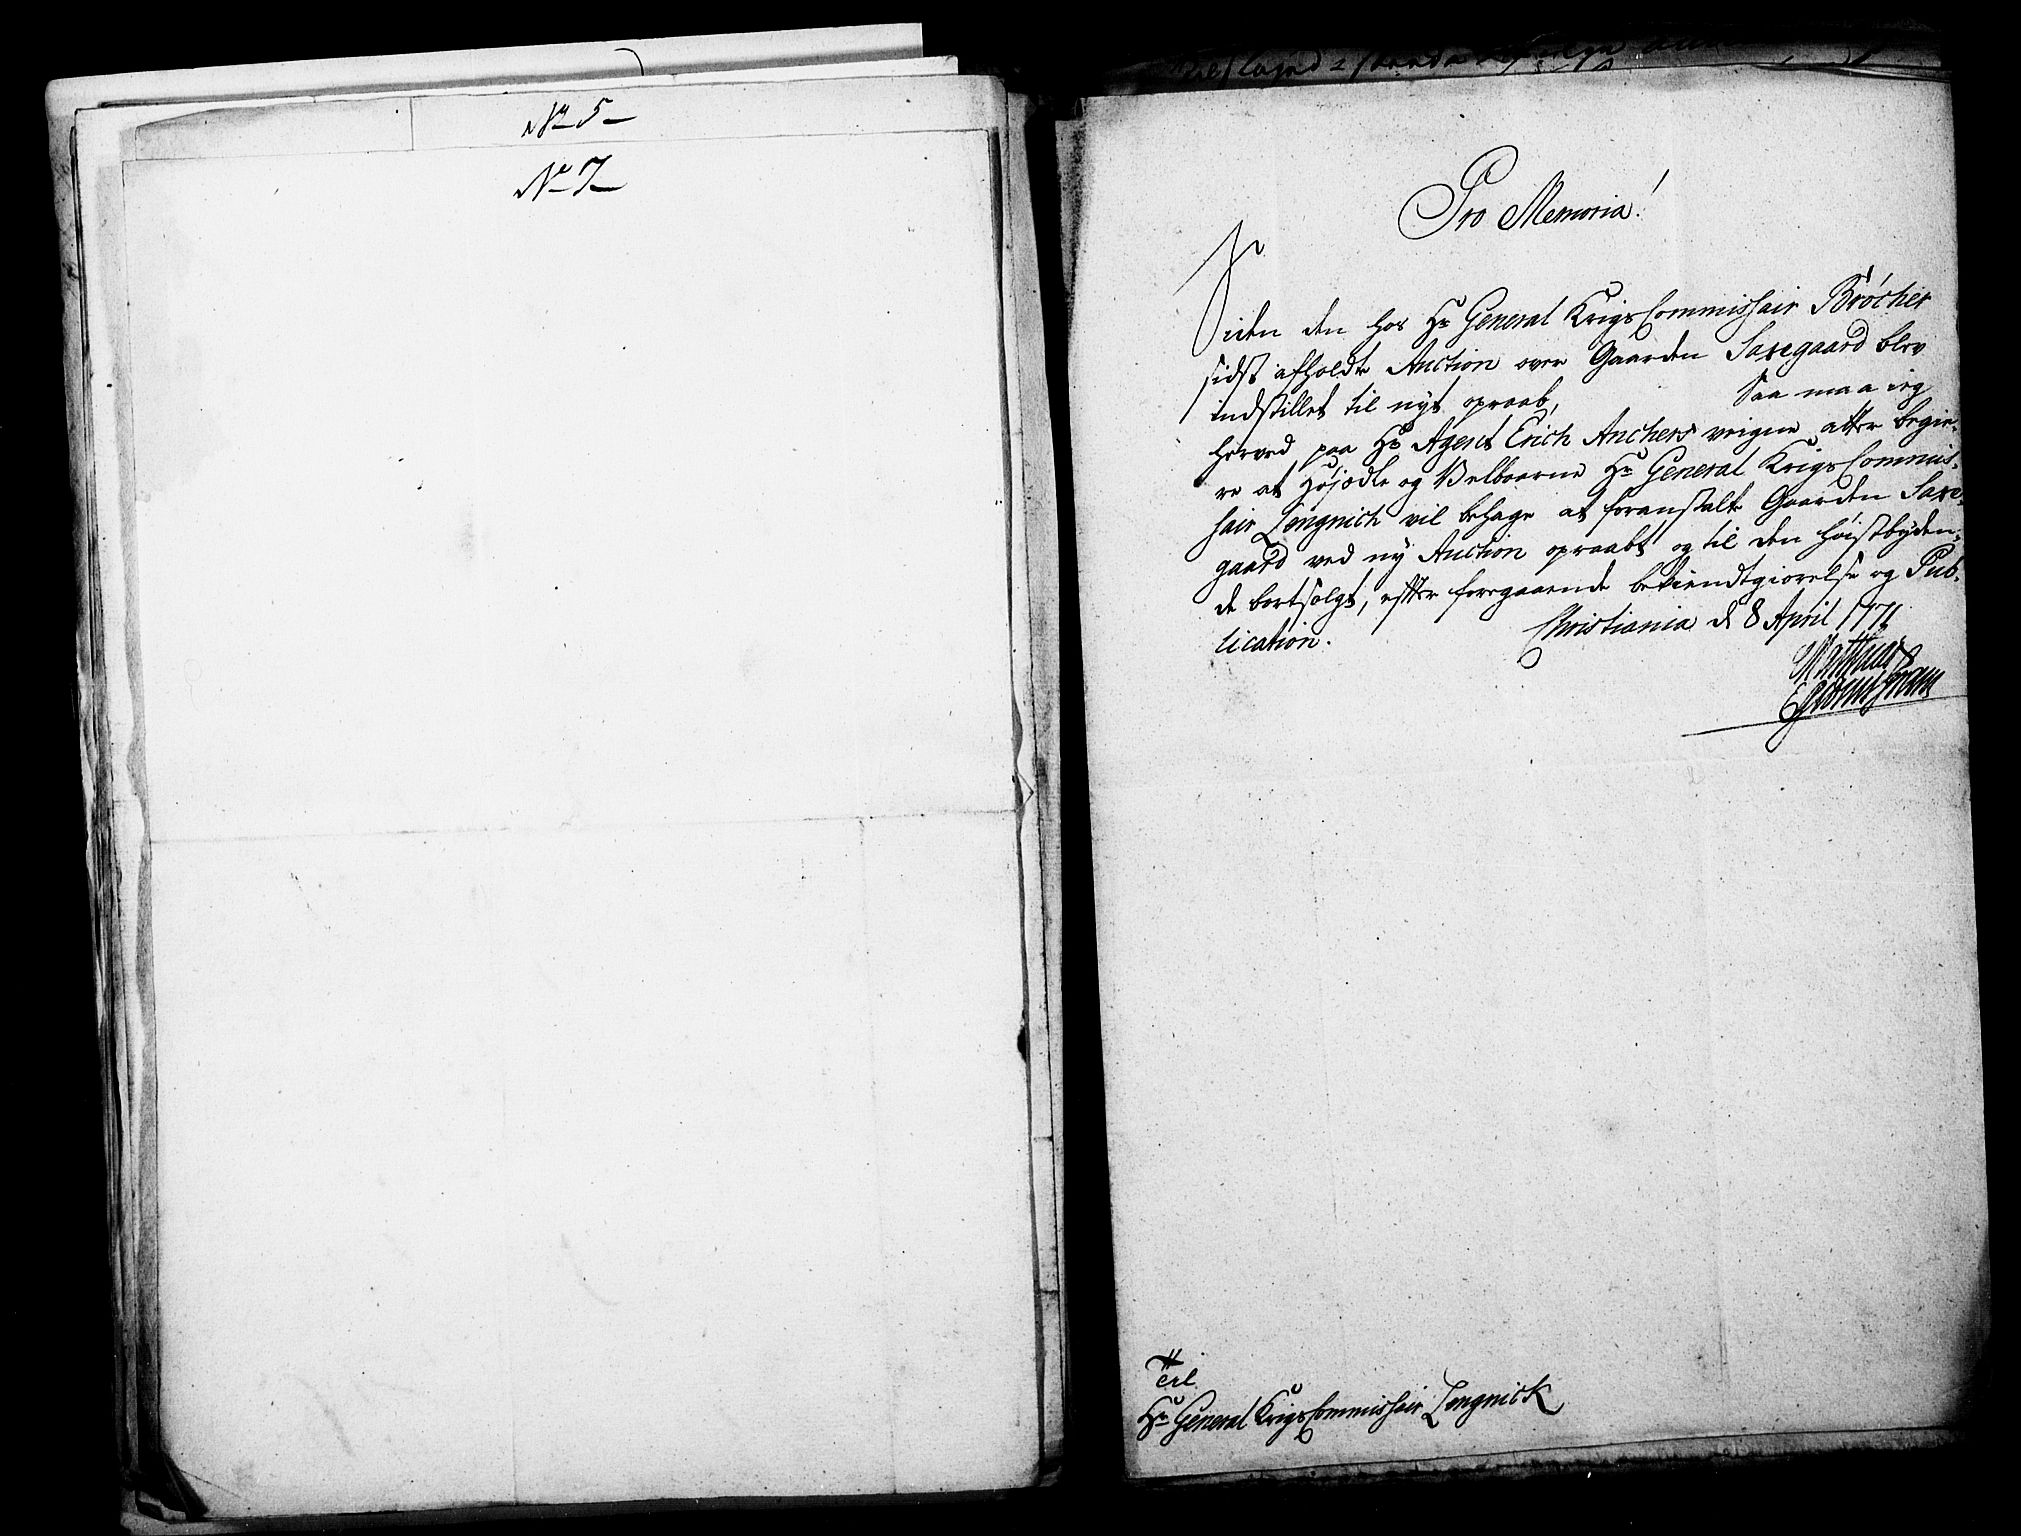 No 5
No 7
Pro Memoria!
Siden den hos Hr General KrigsCommissair Bröcher
sidst afholdte Auction over Gaarden Saxegaard blev
indstillet til nyt opraab, Saa maa ieg
herved paa Hr Agent Erich Anchers veigne atter begie-
re at Høiædle og Velbaarne Hr General KrigsCommis-
sair Lengnich vil behage at foranstalte Gaarden Saxe-
gaard ved ny Auction opraabt og til den høistbyden-
de bortsolgt, efter foregaaende bekiendtgiørelse og Pub-
lication.
Christiania d 8 April 1771
Matthias
Til
Hr General KrigsCommissair Lengnick